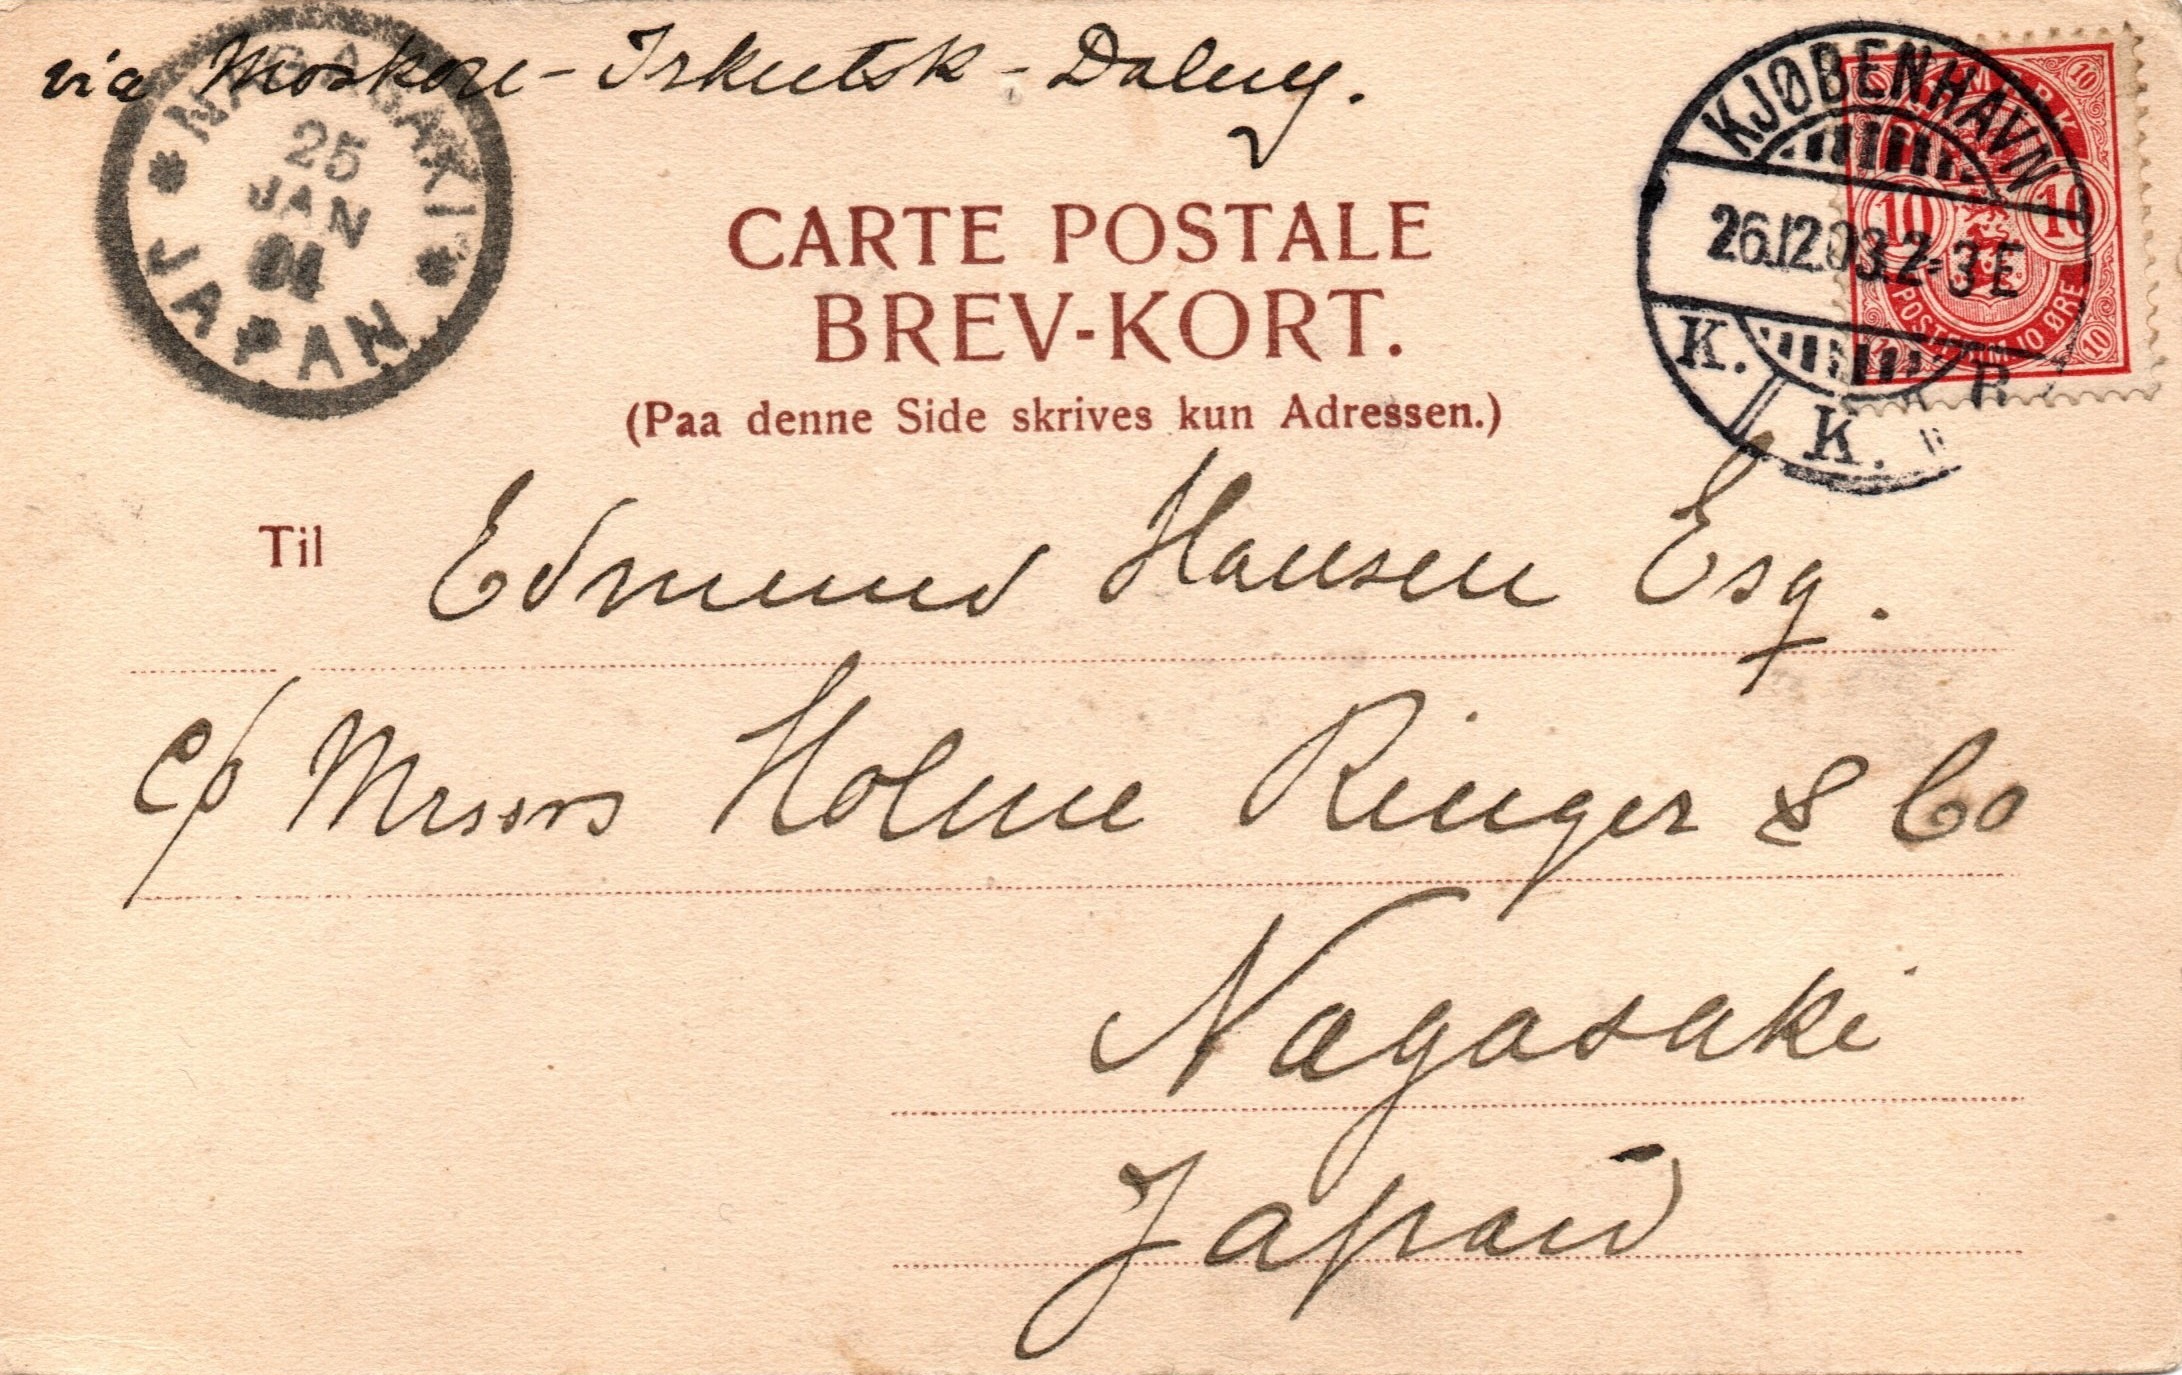 via Moskou - Irkutsk - Dalny.
NAGASAKI
25
JAN
04
JAPAN
KJØBENHAVN
26.12.03.2-3E
K. K.
DANMARK
10 10
POSTFRIM. 10 ØRE
CARTE POSTALE
BREV-KORT.
(Paa denne Side skrives kun Adressen.)
Til Edmund Hansen Esq.
c/o Messrs Holme Ringer & Co
Nagasaki
Japan